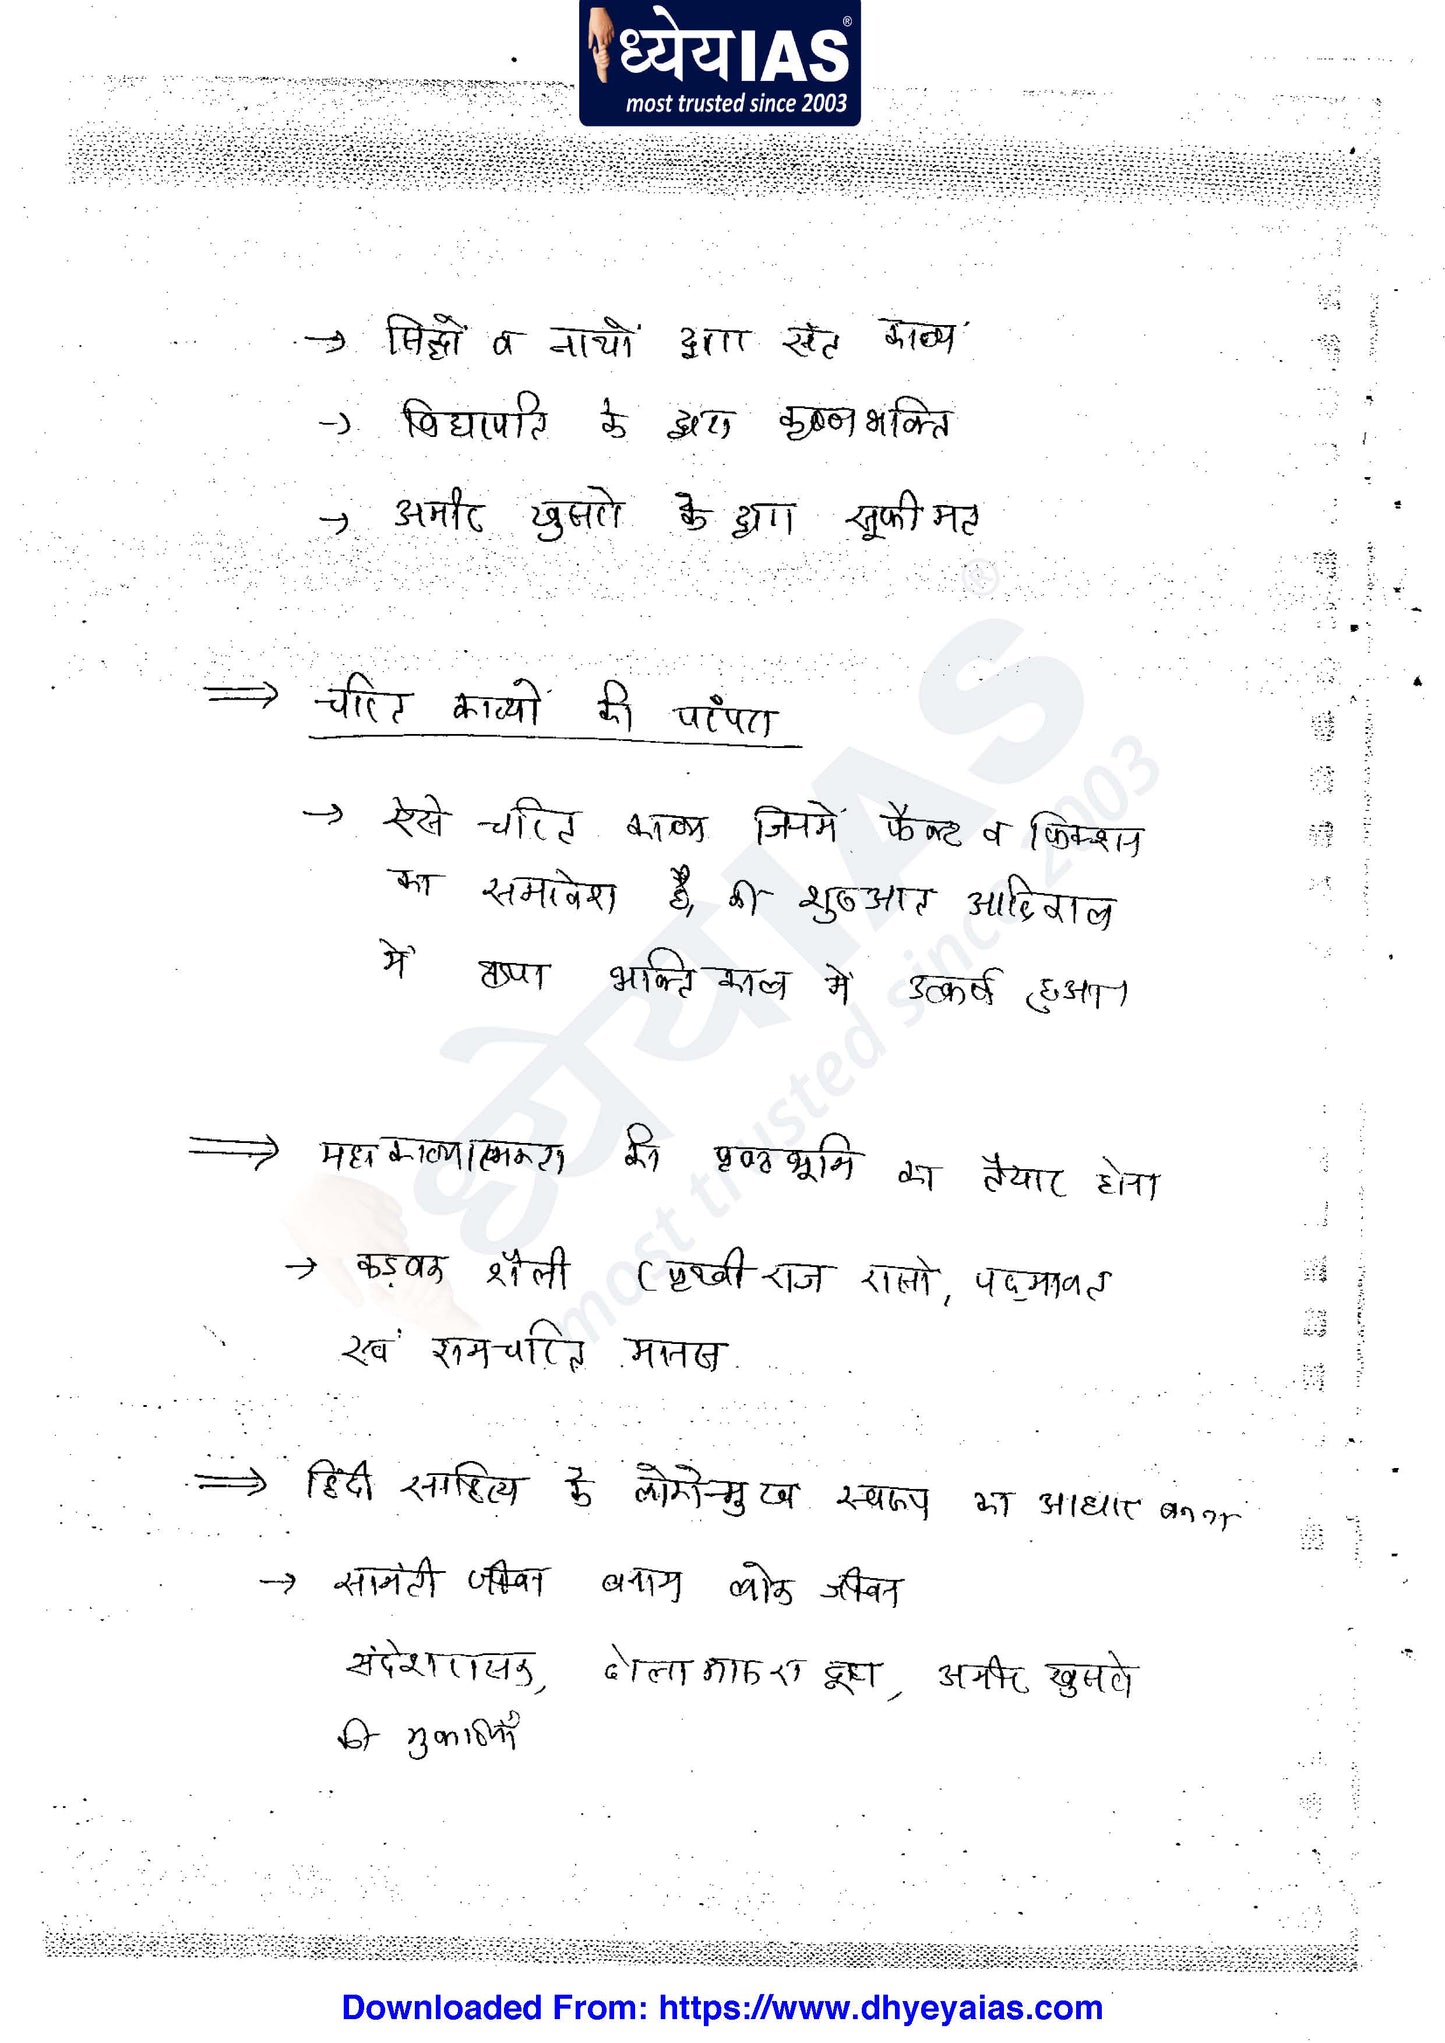 ध्येय IAS®
most trusted since 2003
→ सिद्धों व नाथों द्वारा संत काव्य
→ विद्यापति के द्वारा कृष्णभक्ति
→ अमीर खुसरो के द्वारा सूफी मत
⇒ चरित काव्यों की परंपरा
→ ऐसे चरित काव्य जिनमें फैक्ट व फिक्शन
का समावेश है, की शुरुआत आदिकाल
में तथा भक्तिकाल में उत्कर्ष हुआ।
⇒ महाकाव्यात्मकता की पृष्ठभूमि का तैयार होना
→ कड़वक शैली (पृथ्वीराज रासो, पद्मावत
एवं रामचरित मानस
⇒ हिंदी साहित्य के लोकोन्मुख स्वरूप का आधार बनना
→ सामंती जीवन बनाम लोक जीवन
संदेशरासक, ढोला मारू रा दूहा, अमीर खुसरो
की मुकरियाँ
ध्येय IAS®
most trusted since 2003
Downloaded From: https://www.dhyeyaias.com